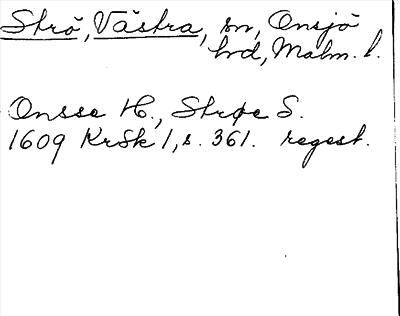 Strö, Västra, sn, Onsjö
hrd, Malm. l.
Onsse H., Strøe S.
1609 KrSk 1, s. 361. regest.